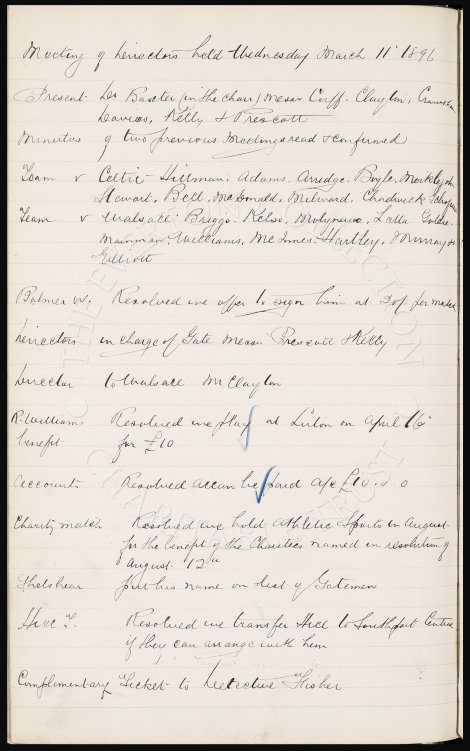 Meeting of Directors held Wednesday March 11th 1896
Present Dr Baxter (in the chair) Messrs Cuff. Clayton, Crawshaw
Davies, Kelly & Prescott
Minutes of two previous Meetings read & confirmed
Team v Celtic Hillman. Adams. Arridge. Boyle.
Stewart, Bell. McDonald, Milward. Chadwick
Team v Walsall Briggs. Kelso. Molyneux, Latta Goldie.
Mainman. Williams, McInnes. Hartley. Murray &
Elliott
Palmer W. Resolved we offer to sign him at 30/- per week
Directors in charge of Gate Messrs Prescott & Kelly
Director to Walsall Mr Clayton
R. Williams Resolved we play at Luton on April 16th
benefit for £10
Accounts Resolved accounts be paid a/c £10. 0. 0
Charity match Resolved we hold Athletic Sports in August
for the benefit of the Charities named in resolution of
August 12th
put his name on list of Gatemen
Hill Resolved we transfer Hill to Southport Central
if they can arrange with him
Complimentary Ticket to Detective Fisher
THE EVERTON COLLECTION
CHARITABLE TRUST